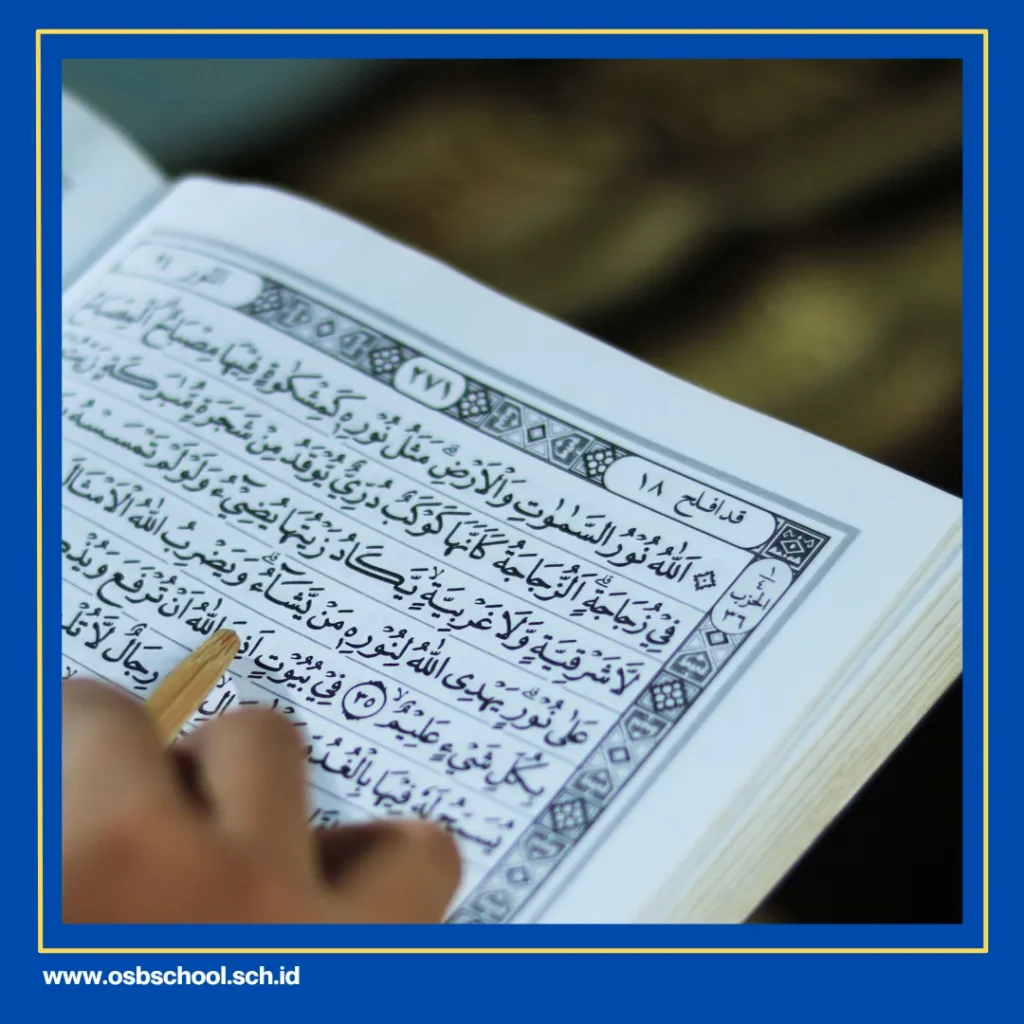 قد افلح ١٨ ٢٧١ النور
١/٤
الحزب
٣٦
۞ اَللّٰهُ نُوْرُ السَّمٰوٰتِ وَالْاَرْضِۗ مَثَلُ نُوْرِهٖ كَمِشْكٰوةٍ فِيْهَا مِصْبَاحٌۗ اَلْمِصْبَاحُ
فِيْ زُجَاجَةٍۗ اَلزُّجَاجَةُ كَاَنَّهَا كَوْكَبٌ دُرِّيٌّ يُّوْقَدُ مِنْ شَجَرَةٍ مُّبٰرَكَةٍ
لَّا شَرْقِيَّةٍ وَّلَا غَرْبِيَّةٍۙ يَّكَادُ زَيْتُهَا يُضِيْۤءُ وَلَوْ لَمْ تَمْسَسْهُ
عَلٰى نُوْرٍۗ يَهْدِى اللّٰهُ لِنُوْرِهٖ مَنْ يَّشَاۤءُۗ وَيَضْرِبُ اللّٰهُ الْاَمْثَالَ
بِكُلِّ شَيْءٍ عَلِيْمٌۙ ٣٥ فِيْ بُيُوْتٍ اَذِنَ اللّٰهُ اَنْ تُرْفَعَ
يُسَبِّحُ لَهٗ فِيْهَا
رِجَالٌ لَّا
www.osbschool.sch.id